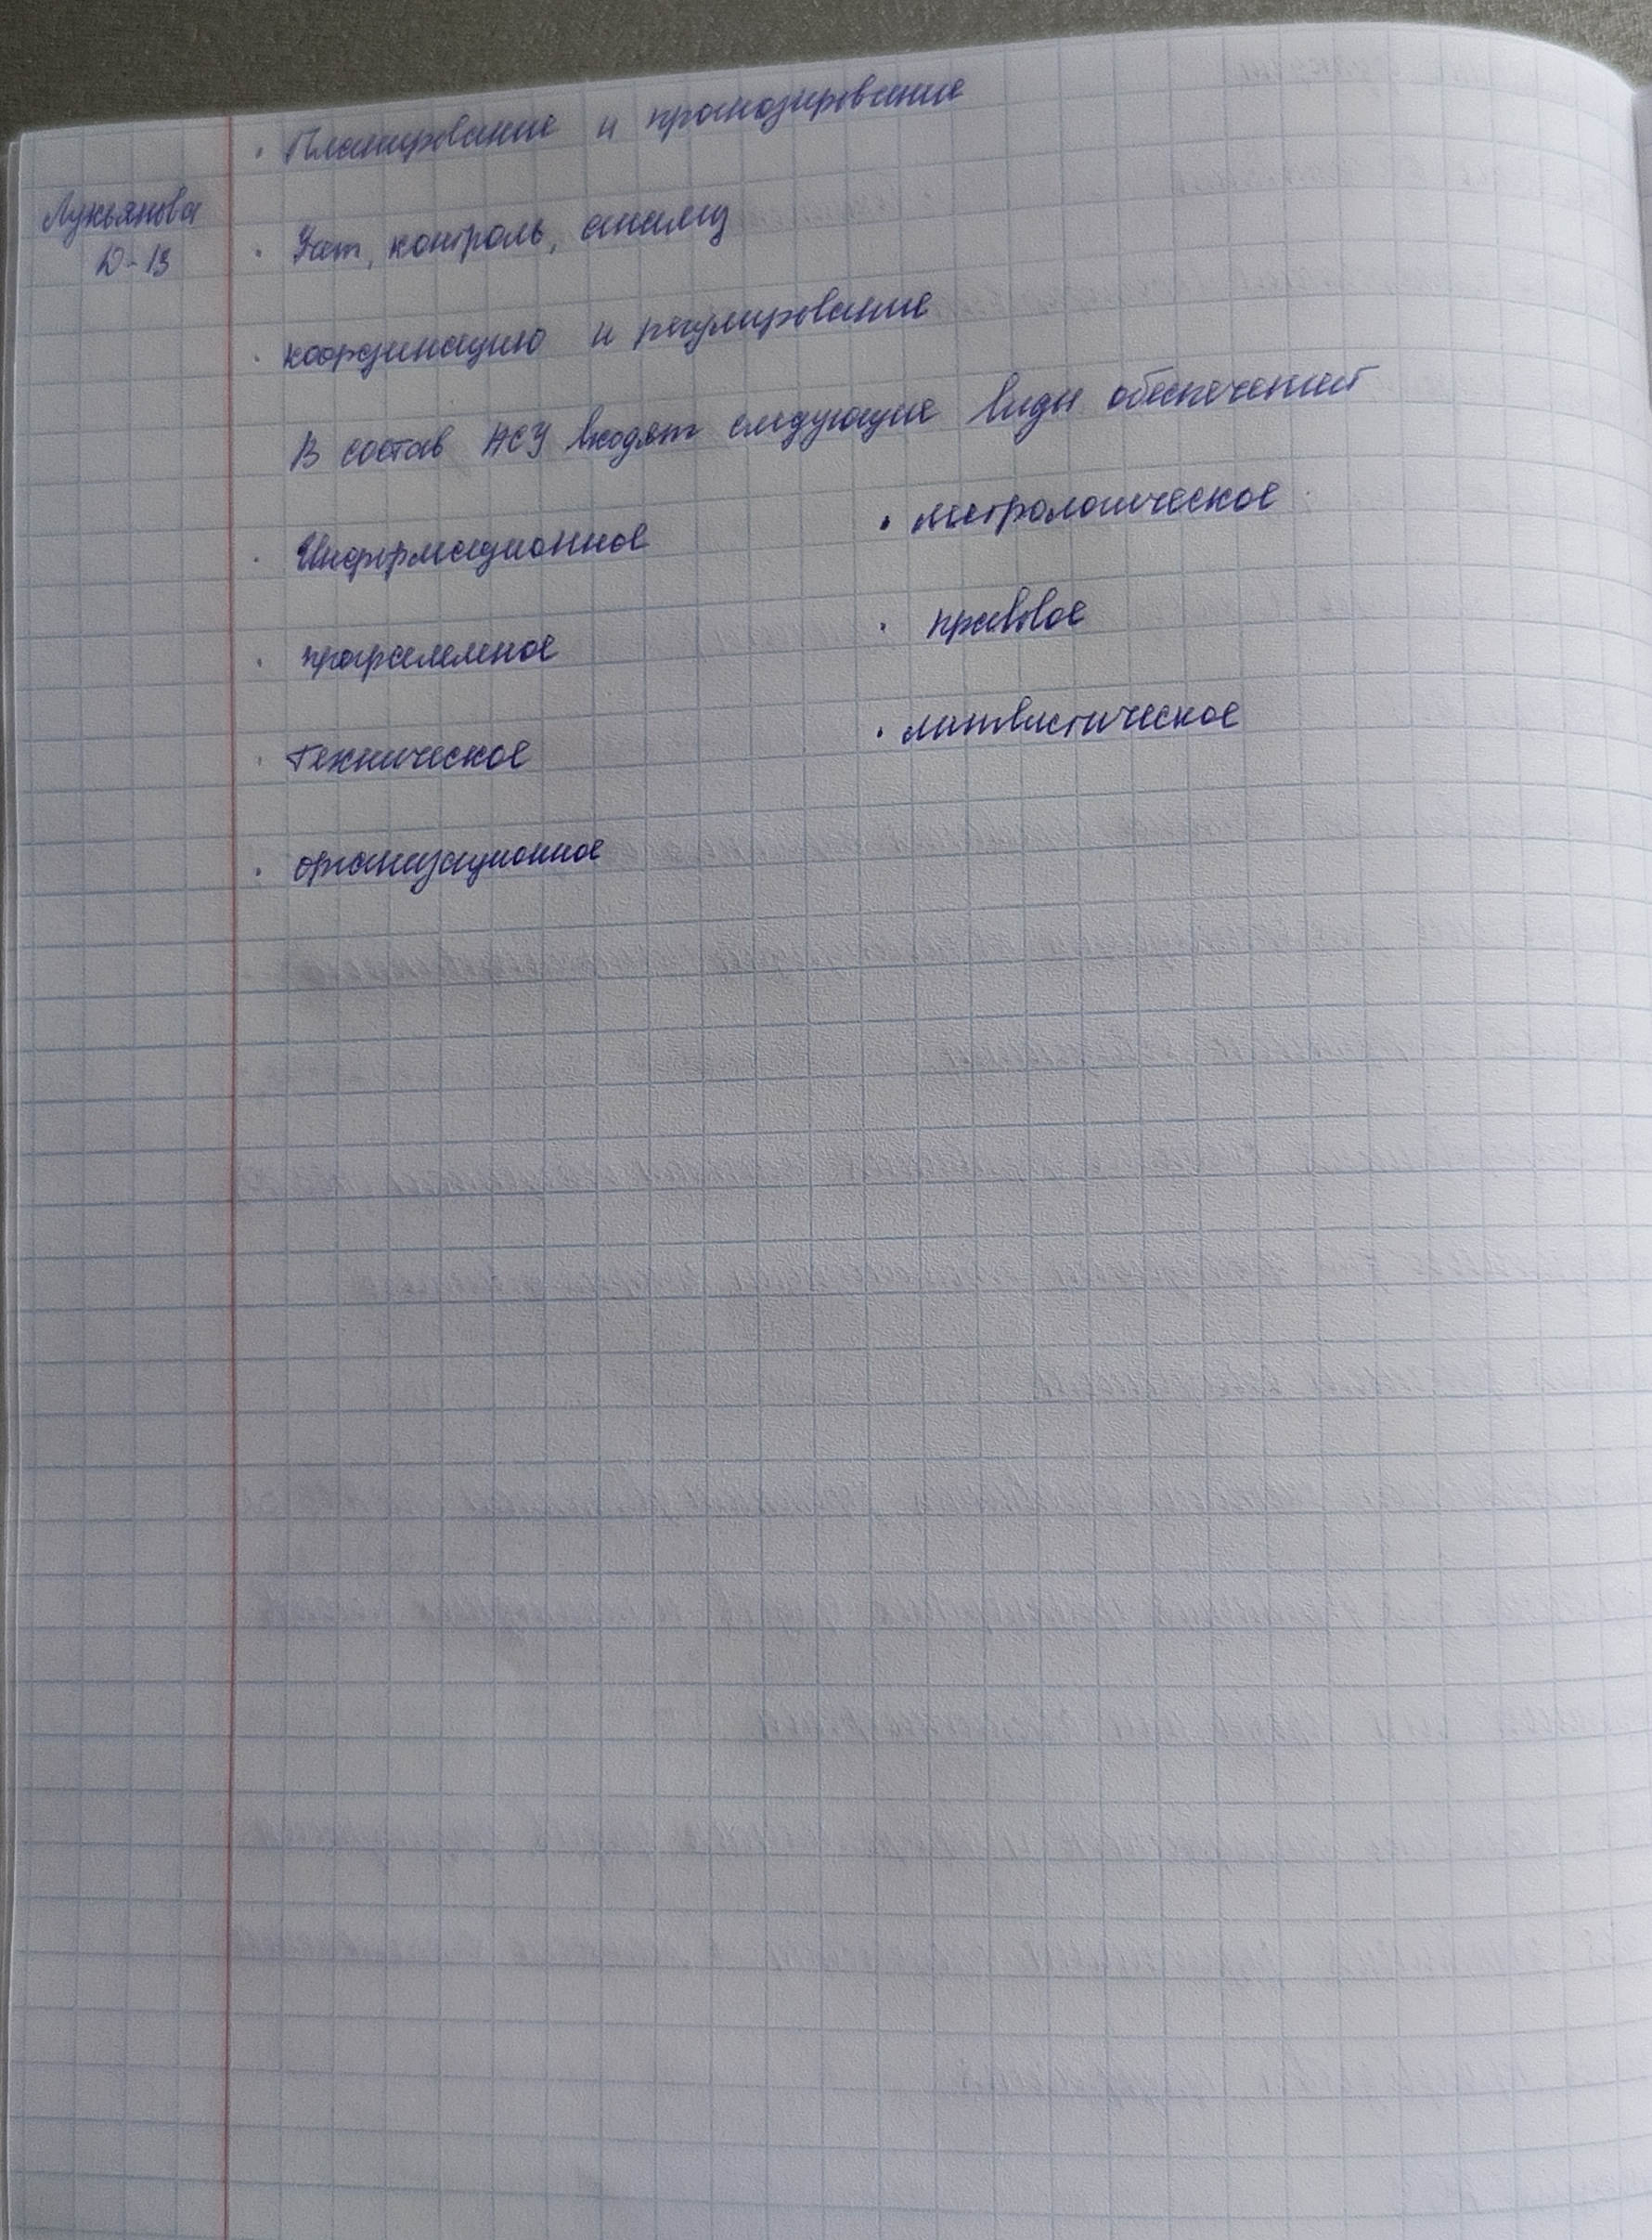 · Планирование и прогнозирование
Лукьянова
Д-13
· Учет, контроль, анализ
· координацию и регулирование
В состав АСУ входят следующие виды обеспечений
· Информационное
· метрологическое
· программное
· правовое
· техническое
· лингвистическое
· организационное